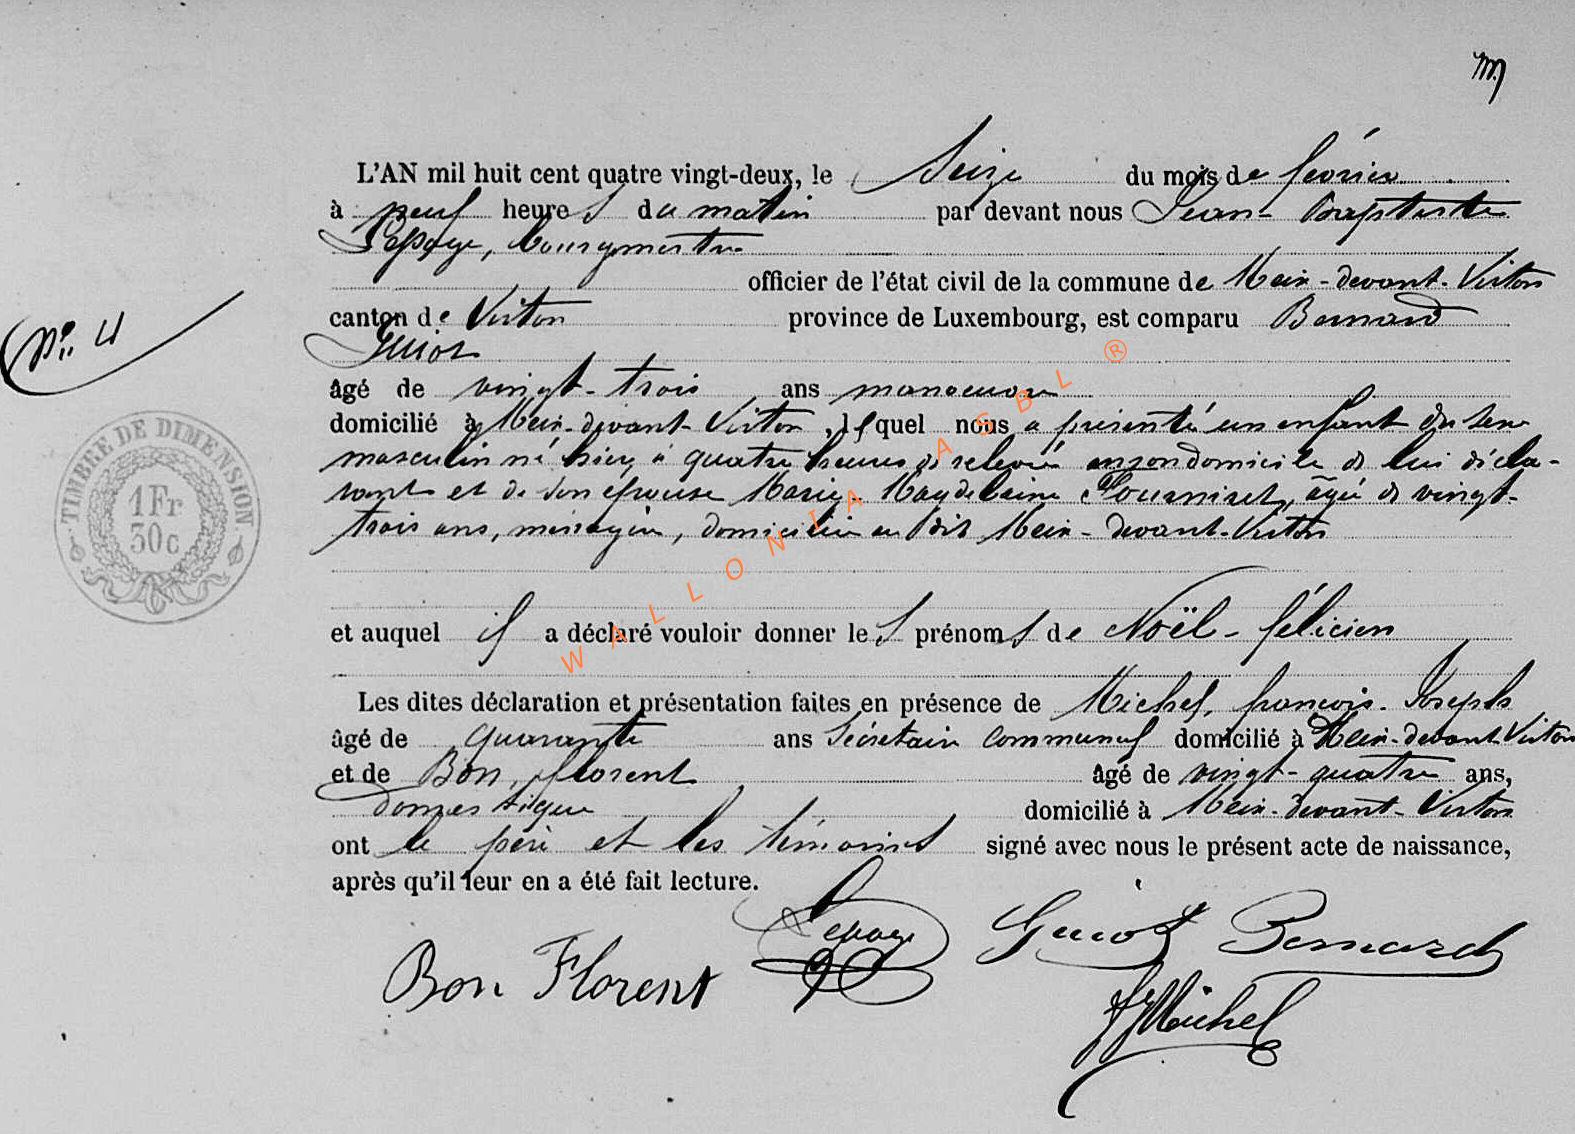 L'AN mil huit cent quatre vingt-deux, le Seize du mois de février
à neuf heures du matin par devant nous Jean-Baptiste
Lepage, bourgmestre
officier de l'état civil de la commune de Meix-devant-Virton
canton de Virton province de Luxembourg, est comparu Bernard
Guiot
âgé de vingt-trois ans manoeuvre
domicilié à Meix-devant-Virton, lequel nous a présenté un enfant du sexe
masculin né hier à quatre heures de relevée en son domicile de lui décla-
rant et de son épouse Marie-Magdelaine Fourniret, âgée de vingt-
trois ans, ménagère, domiciliée au dit Meix-devant-Virton
et auquel il a déclaré vouloir donner les prénoms de Noël-félicien
Les dites déclaration et présentation faites en présence de Michel, françois-Joseph
âgé de quarante ans Sécretaire communal domicilié à Meix-devant Virton
et de Bon, florent âgé de vingt-quatre ans,
domestique domicilié à Meix-devant-Virton
ont le père et les témoins signé avec nous le présent acte de naissance,
après qu'il leur en a été fait lecture.
Lepage
Guiot Bernard
Bon Florent
Michel
No 4
TIMBRE DE DIMENSION
1 Fr
30 c
WALLONIA ASBL ®